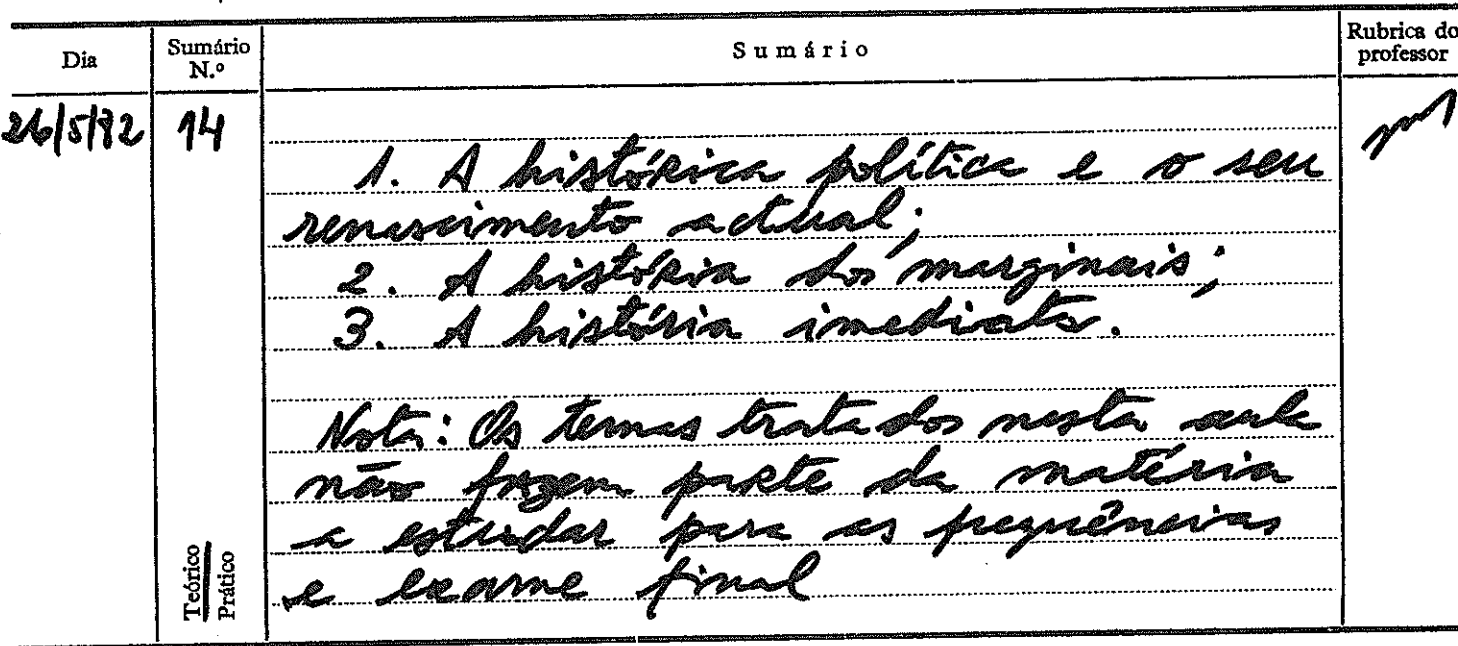 Dia
Sumário
N.º
Sumário
Rubrica do
professor
26/5/82
14
1. A histórica política e o seu
renascimento actual;
2. A história dos marginais;
3. A história imediata.
Nota: Os temas tratados nesta aula
não fazem parte da matéria
a estudar para as frequências
e exame final
Teórico
Prático